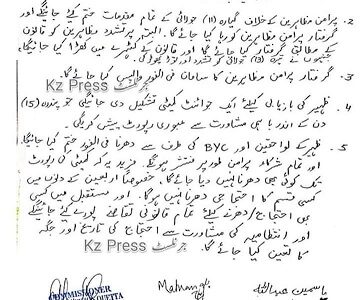 2. پرامن مظاہرین کے خلاف گیارہ (11) جولائی کے تمام مقدمات ختم کیے جائیں گے اور
گرفتار پرامن مظاہرین کو رہا کیا جائے گا۔ البتہ پرتشدد مظاہرین کو قانون
کے مطابق گرفتار کیا جائے گا اور قانون کے کٹہرے میں کھڑا کیا جائیگا
جنہوں نے (11) جولائی کو تشدد اور توڑ پھوڑ کی۔
3. گرفتار پرامن مظاہرین کا سامان فی الفور واپس کیا جائے گا۔
Kz Press جرنلسٹ
4. ظہیر کی بازیابی کیلئے ایک جوائنٹ کمیٹی تشکیل دی جائیگی جو پندرہ (15)
دن کے اندر باہمی مشاورت سے عبوری رپورٹ پیش کریگی
5. ظہیر کے لواحقین اور BYC کی طرف سے دھرنا فی الفور ختم کیا جائیگا
اور تمام شرکاء پرامن طور پر منتشر ہونگے۔ مزید یہ کہ کمیٹی کی رپورٹ
تک کوئی بھی دھرنا نہیں دیا جائے گا۔ خصوصاً اربعین کے دنوں میں
کسی قسم کا احتجاجی دھرنا نہیں ہوگا۔ اور مستقبل میں کسی
بھی احتجاج/دھرنہ کیلئے تمام قانونی تقاضے پورے کیے جائینگے
اور انتظامیہ کی مشاورت سے احتجاج کی تاریخ اور جگہ
کا تعین کیا جائے گا۔
Kz Press جرنلسٹ
COMMISSIONER
QUETTA
یاسمین عبداللہ